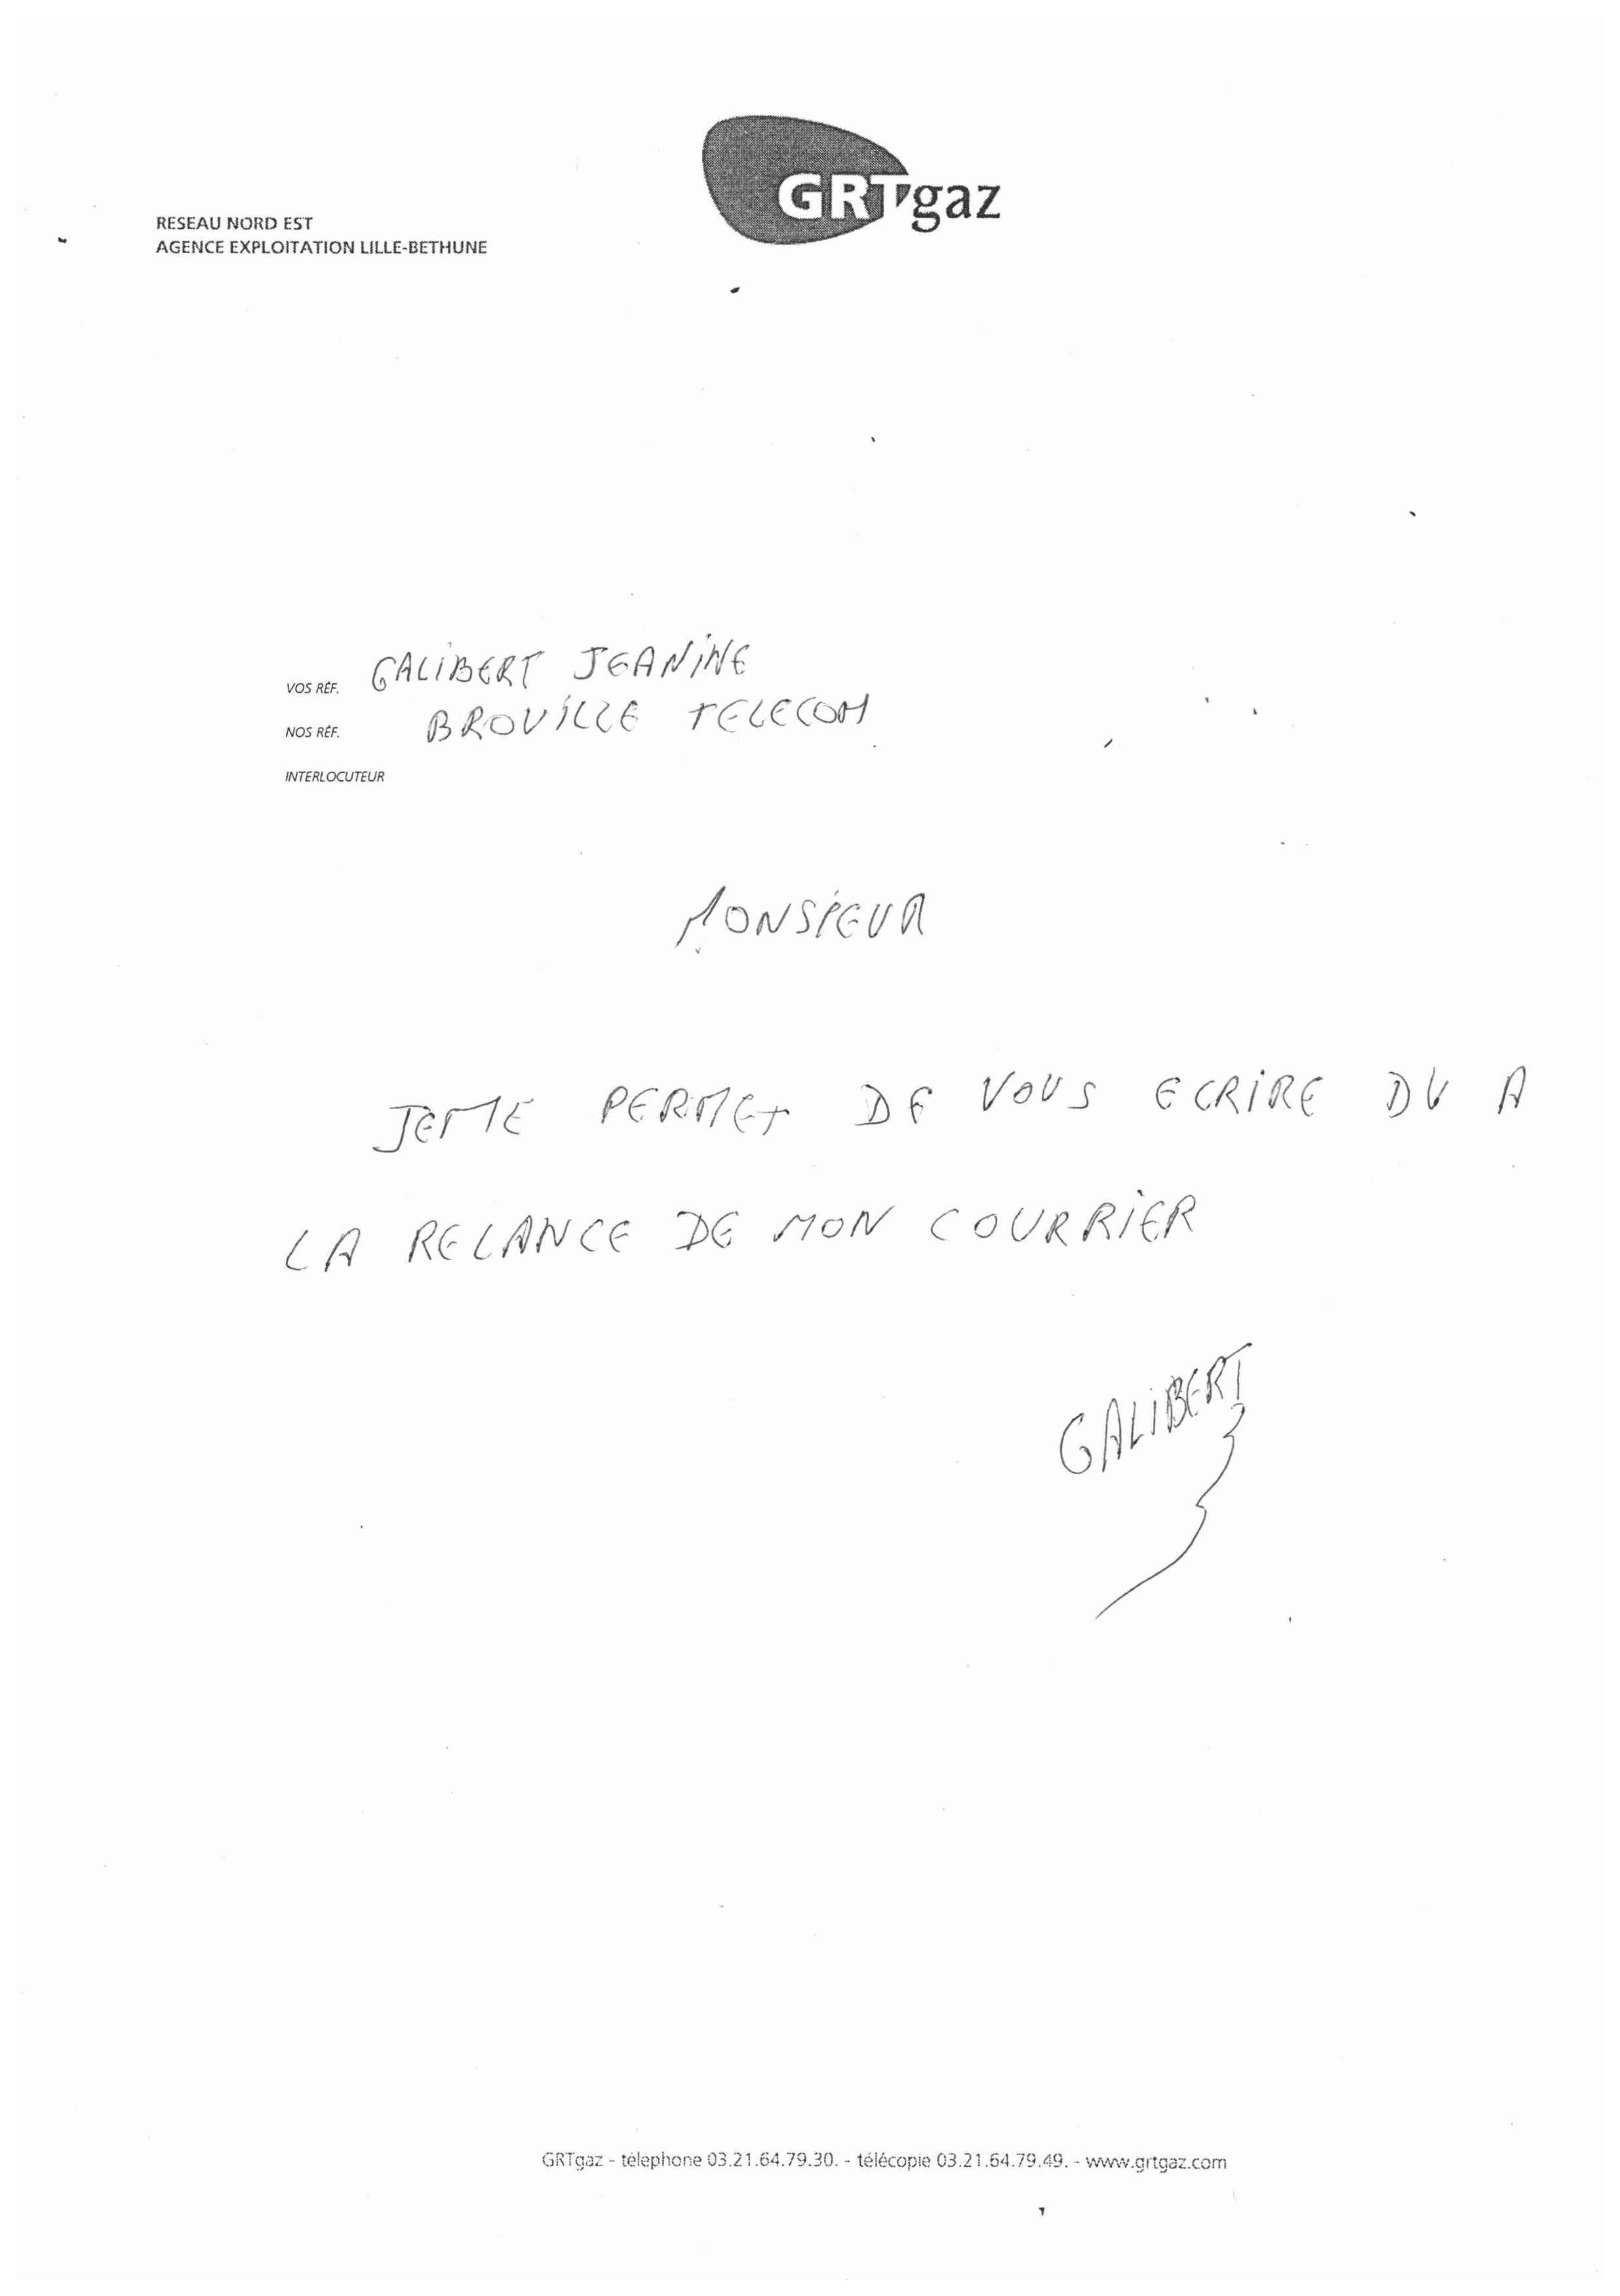 GRTgaz
RESEAU NORD EST
AGENCE EXPLOITATION LILLE-BETHUNE
VOS RÉF. GALIBERT JEANINE
NOS RÉF. BROUILLE TELECOM
INTERLOCUTEUR
MONSIEUR
JEME PERMET DE VOUS ECRIRE DU A
LA RELANCE DE MON COURRIER
GALIBERT
GRTgaz - téléphone 03.21.64.79.30. - télécopie 03.21.64.79.49. - www.grtgaz.com